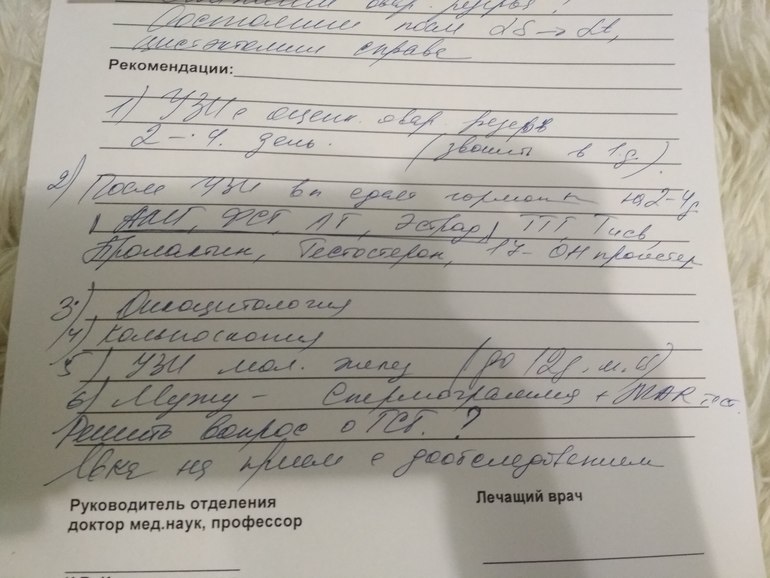 овар. резерва!
Состояние после LS →
цистэктомии справа
Рекомендации:
1) УЗИ с оценк. овар. резерва
2-4 день. (звонить в 1 д.)
2) После УЗИ вы сдаете гормоны на 2-4 д
(АМГ, ФСГ, ЛГ, Эстрад) ТТГ, Т4св,
Пролактин, Тестостерон, 17-ОН прогестер
3) Онкоцитология
4) Кольпоскопия
5) УЗИ мол. желез (до 12 д. м. ц)
6) Мужу - Спермограмма + MAR тест.
Решить вопрос о ГСГ. ?
Явка на прием с дообследованием
Руководитель отделения
доктор мед.наук, профессор
Лечащий врач